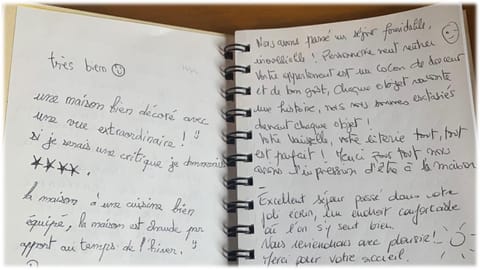 très bien
une maison bien décoré avec
une vue extraordinaire !
si je serais une critique je donnerais
★★★★.
la maison à une cuisine bien
équipé, la maison est chaude par
apport au temps de l'hiver.
Nous avons passé un séjour formidable,
inoubliable ! Personne ne veut rentrer
Votre appartement est un cocon de douceur
et de bon goût, chaque objet raconte
une histoire, nous nous sommes extasiés
devant chaque objet !
Votre vaisselle, votre literie tout, tout
est parfait ! Merci pour tout nous
avons l'impression d'être à la maison
Excellent séjour passé dans votre
joli écrin, un endroit confortable
où l'on s'y sent bien.
Nous reviendrons avec plaisir !
Merci pour votre accueil.